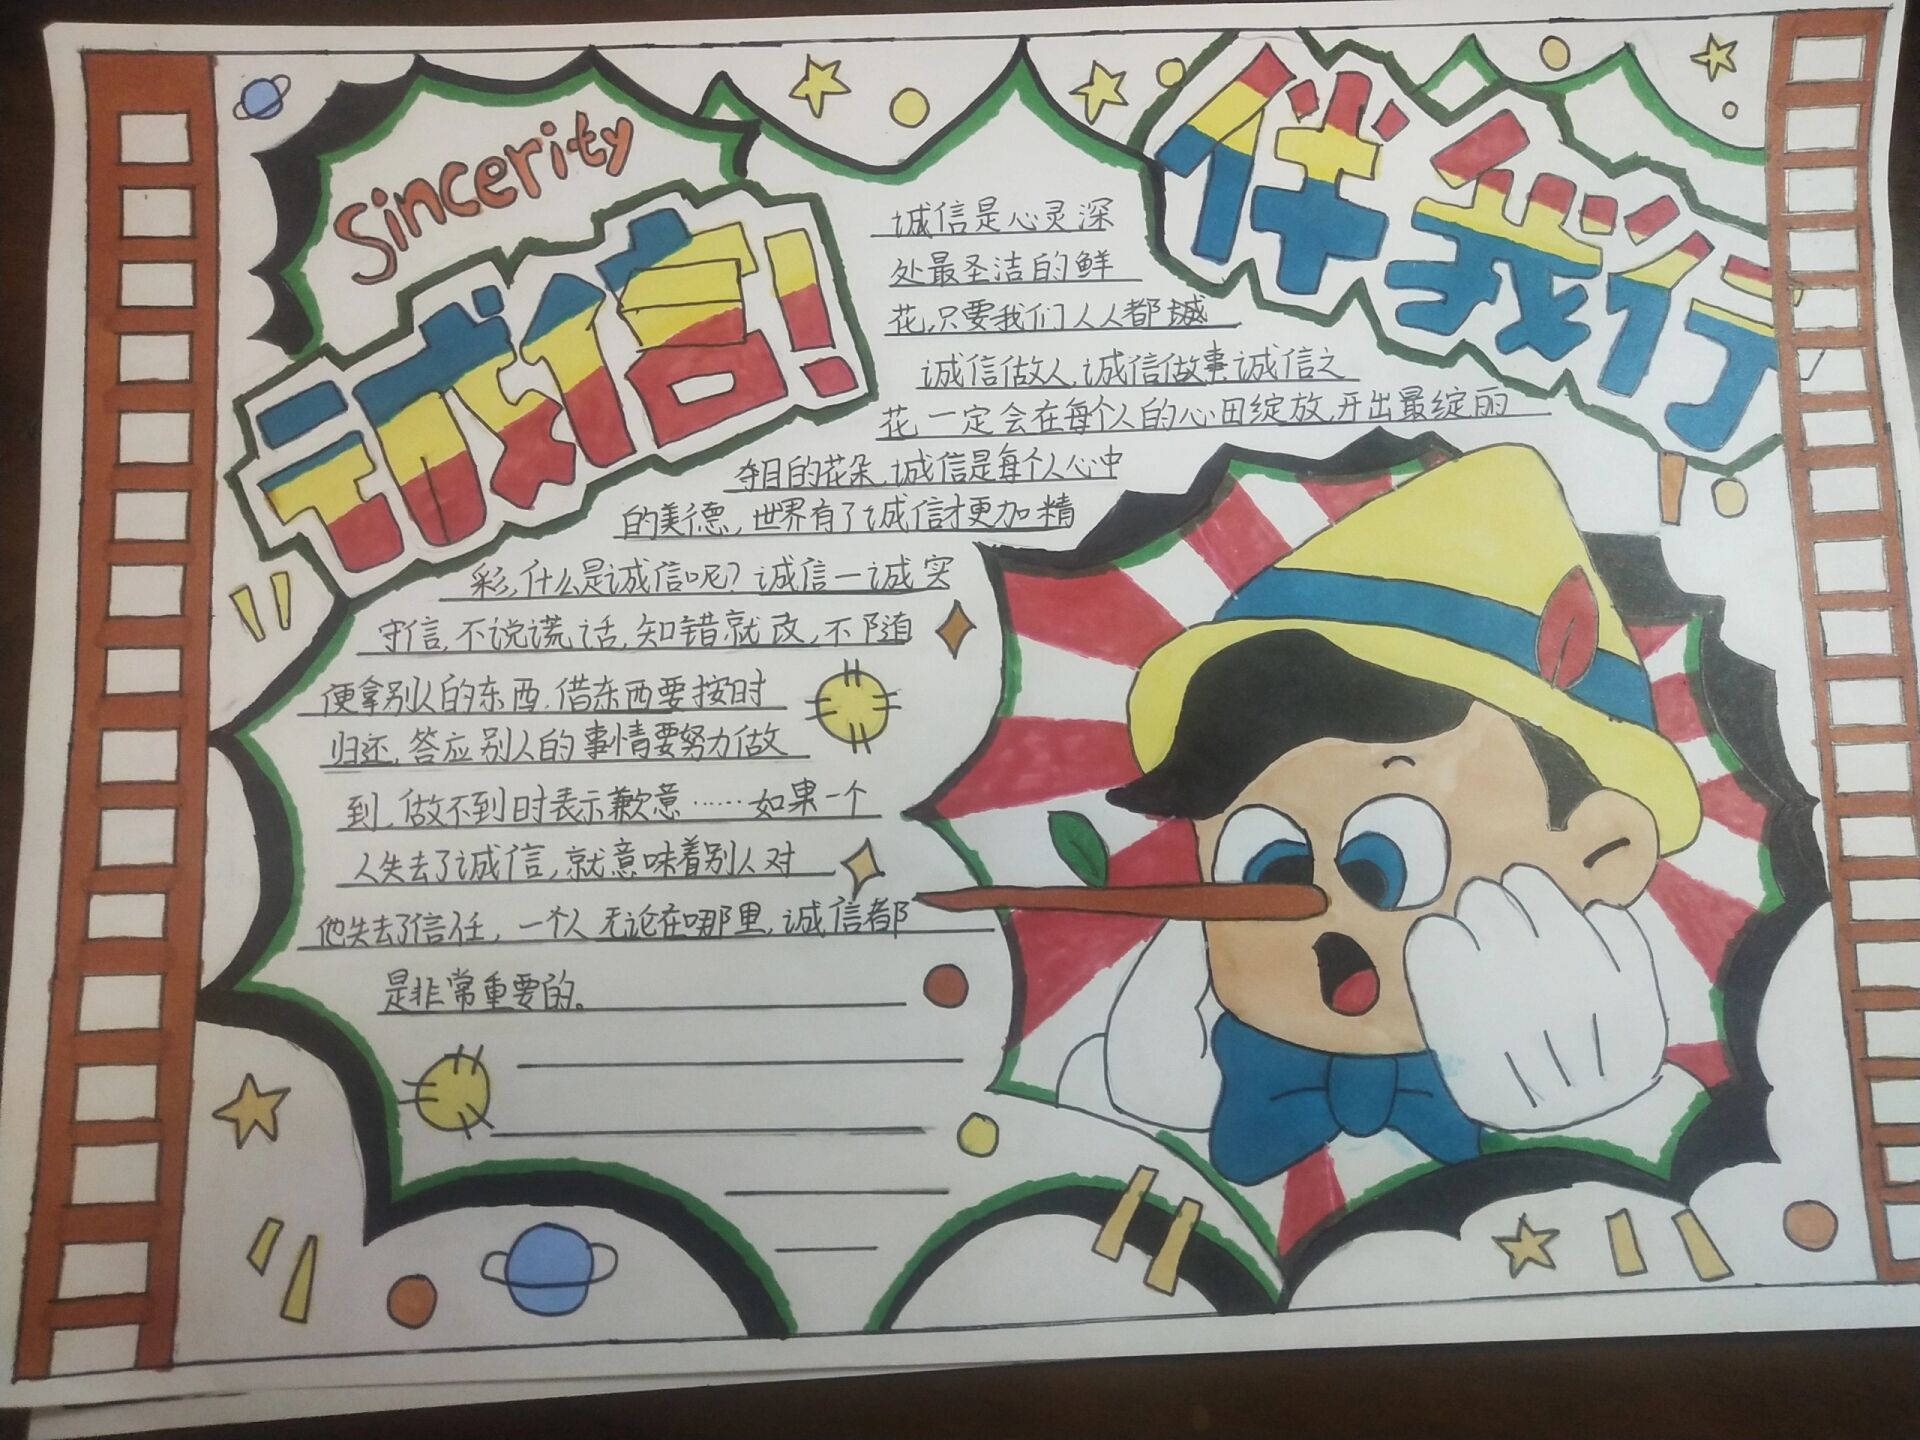 sincerity
诚信!
伴我行
诚信是心灵深
处最圣洁的鲜
花,只要我们人人都
诚信做人,诚信做事,诚信之
花一定会在每个人的心田绽放,开出最绽丽
夺目的花朵,诚信是每个人心中
的美德,世界有了诚信才更加精
彩,什么是诚信呢?诚信一诚实
守信,不说谎话,知错就改,不随
便拿别人的东西,借东西要按时
归还,答应别人的事情要努力做
到,做不到时表示歉意……如果一个
人失去了诚信,就意味着别人对
他失去了信任,一个人无论在哪里,诚信都
是非常重要的。